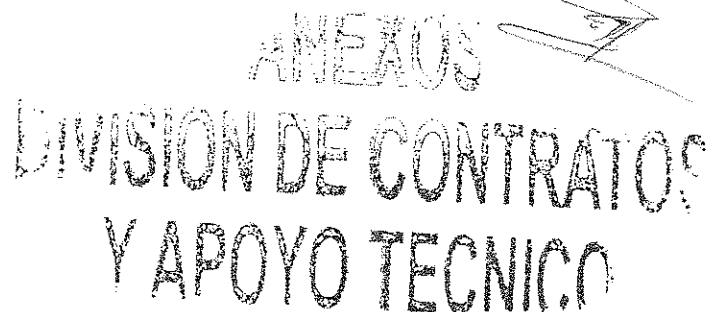 ANEXOS
DIVISION DE CONTRATOS
Y APOYO TECNICO